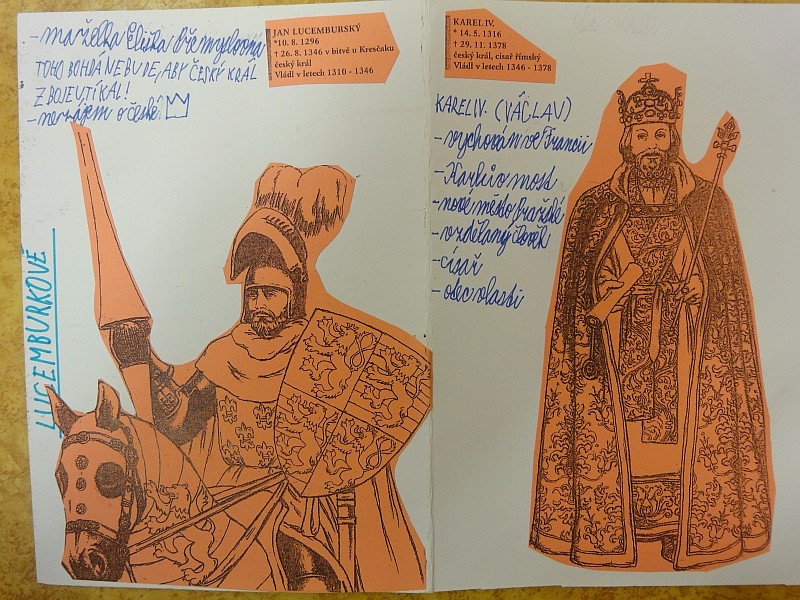 - manželka Eliška Přemyslovna
TOHO BOHDÁ NEBUDE, ABY ČESKÝ KRÁL
Z BOJE UTÍKAL!
- nezájem o české
JAN LUCEMBURSKÝ
*10. 8. 1296
† 26. 8. 1346 v bitvě u Kresčaku
český král
Vládl v letech 1310 - 1346
LUCEMBURKOVÉ
KAREL IV.
* 14. 5. 1316
† 29. 11. 1378
český král, císař římský
Vládl v letech 1346 - 1378
KAREL IV. (VÁCLAV)
- vychován ve Francii
- Karlův most
- nové město Pražské
- vzdělaný člověk
- císař
- otec vlasti